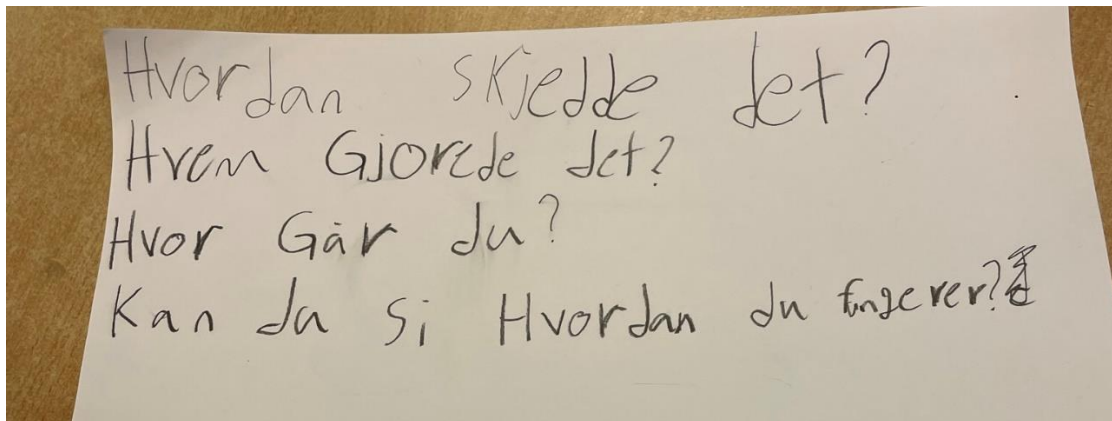 Hvordan skjedde det?
Hvem Gjorede det?
Hvor Går du?
Kan du si Hvordan du fungerer?